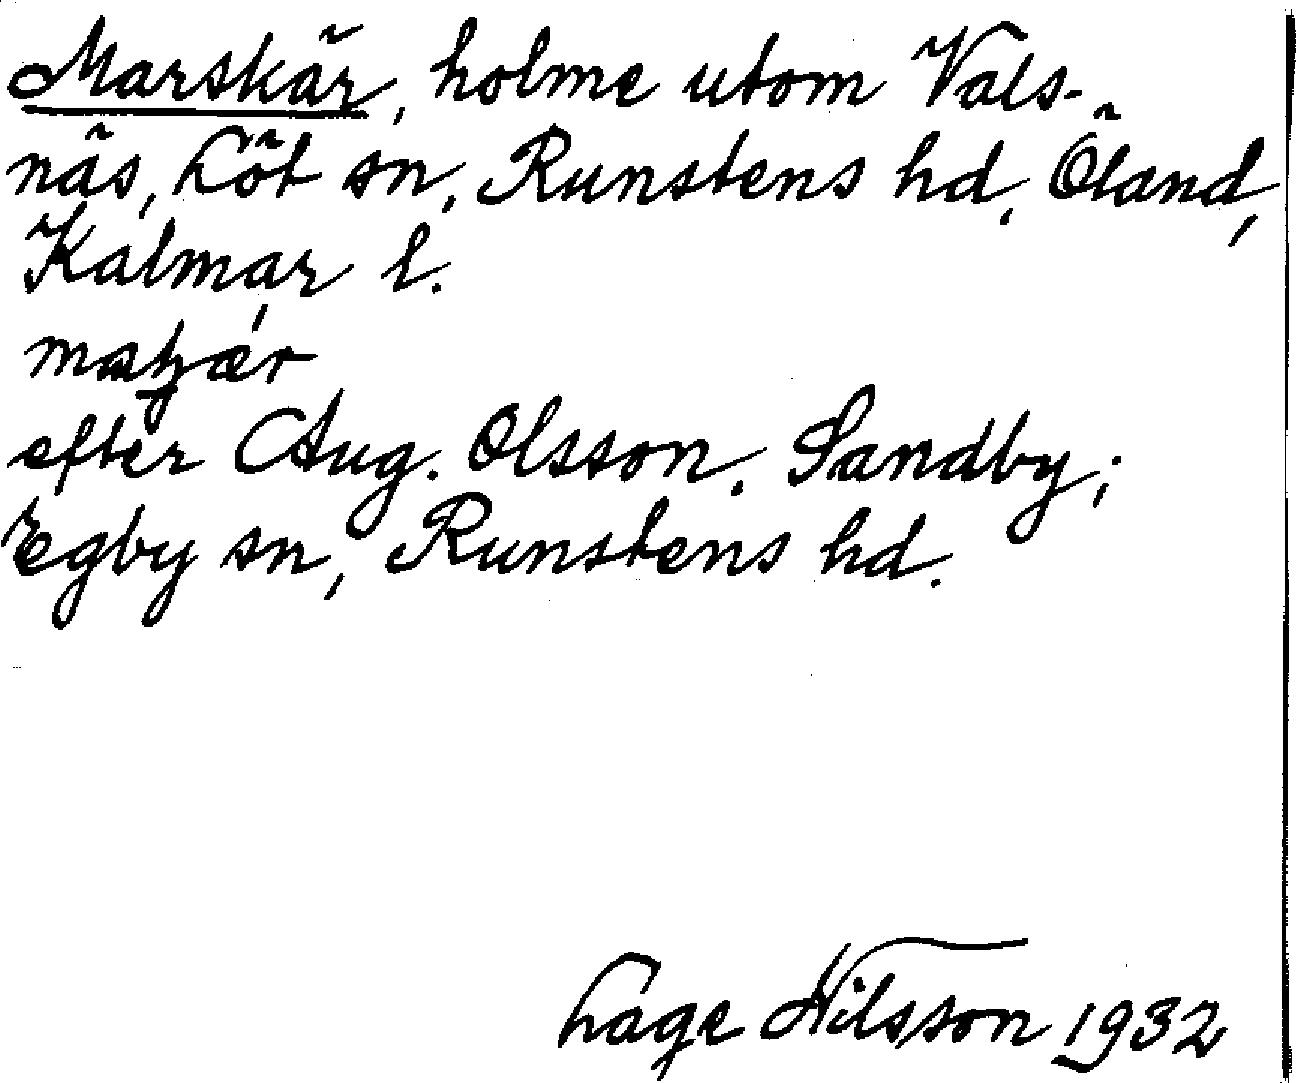 Marskär, holme utom Vals-
näs, Löt sn, Runstens hd, Öland,
Kalmar l.
efter Aug. Olsson, Sandby,
Egby sn, Runstens hd.
Lage Nilsson 1932